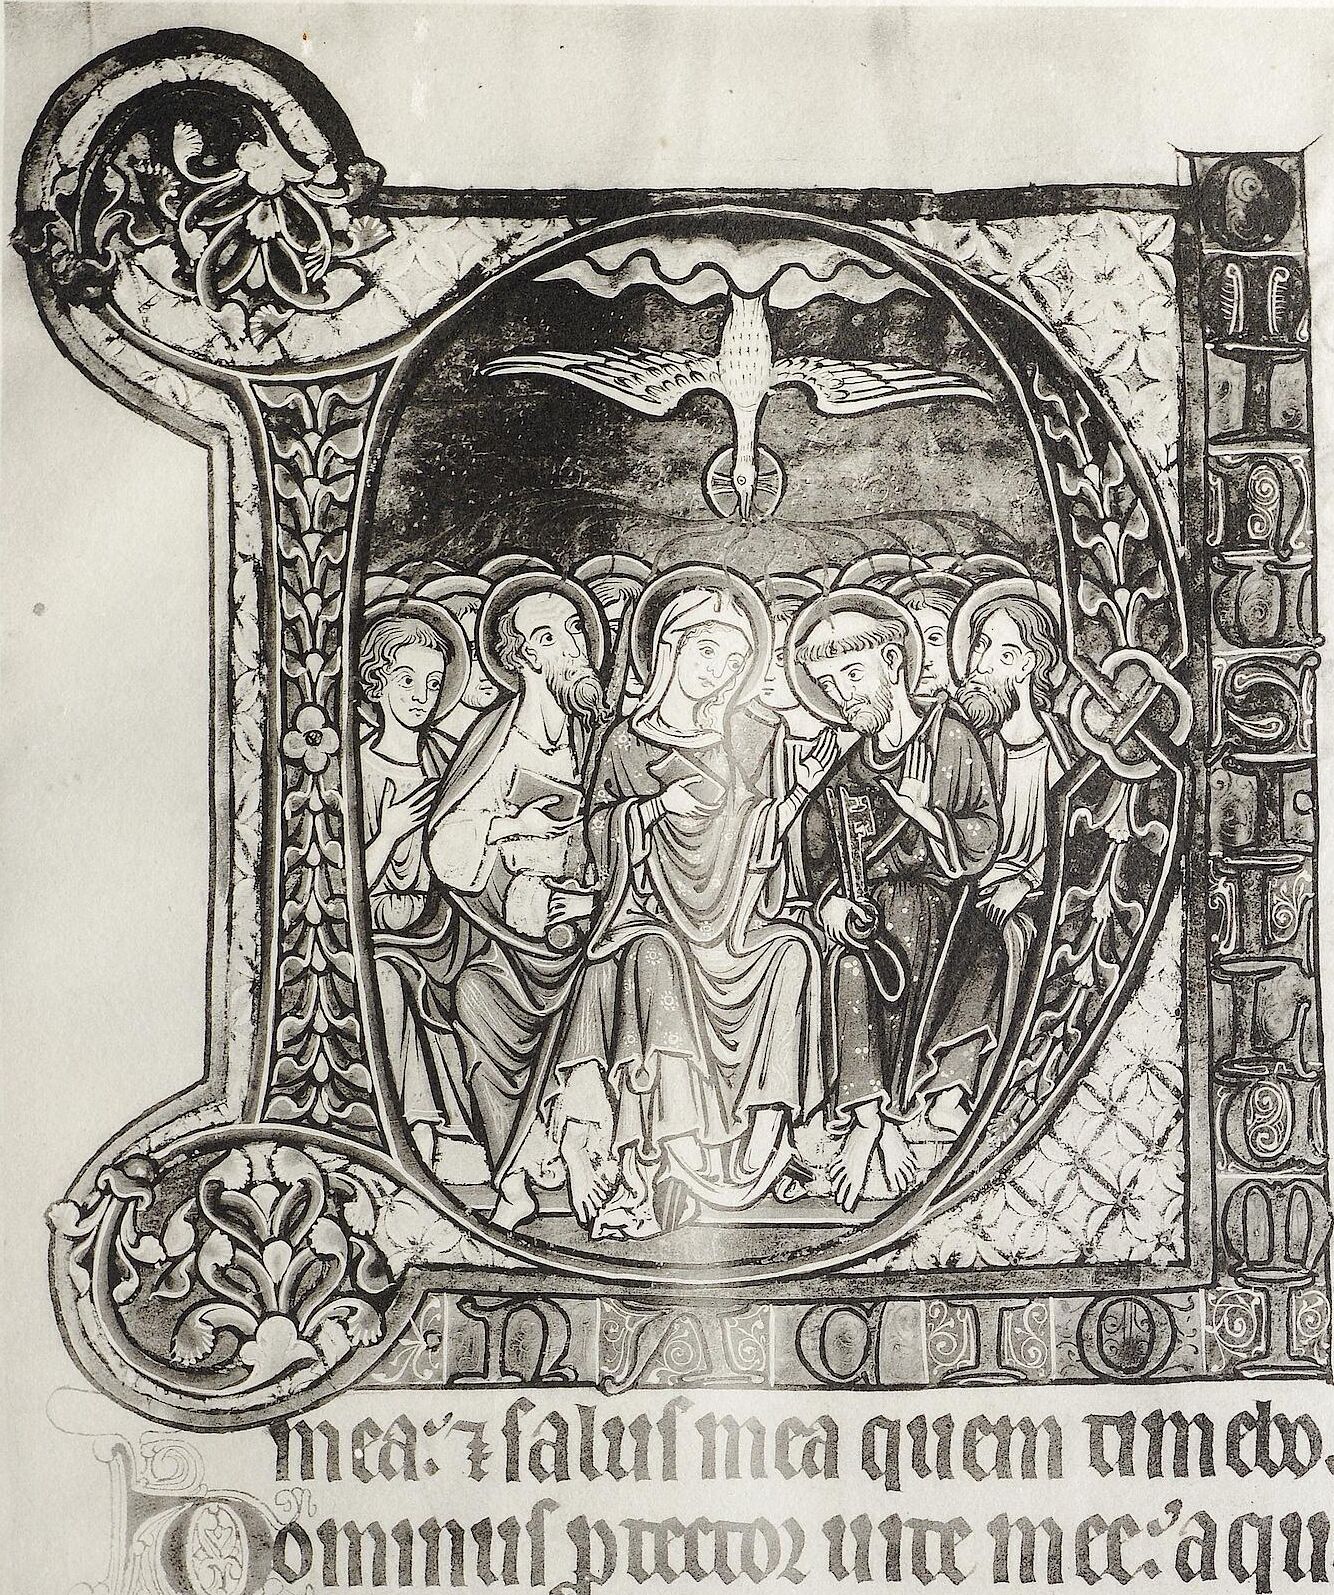 DOMINUS ILLUMI
NACIO
mea: ⁊ saluſ mea quem timebo.
Dominuſ ptector uite mee: a qu